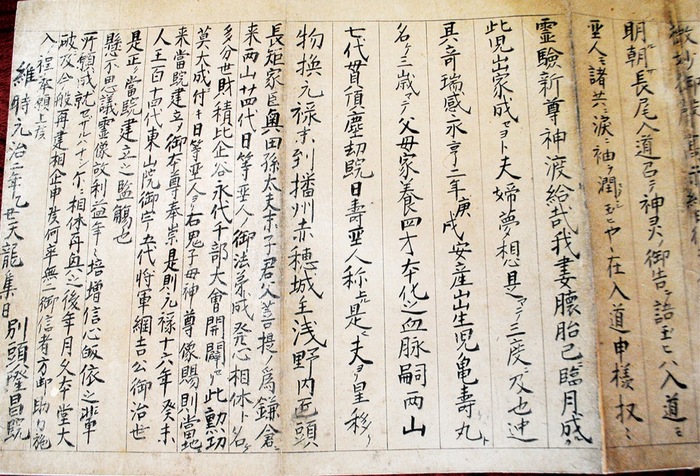 明朝長尾入道召テ神灵ノ御告ヲ語玉ヘハ入道ニ
聖人ニ諸共ニ涙ニ袖ヲ潤玉ニヤヽ在入道申様权ニ
霊驗新尊神渡給哉我妻懐胎已臨月成
此児出家成セヨト夫婦夢想見シヤテ三度及也速
其奇瑞感永享二年庚戌安産出生児ノ亀壽丸
名ケ三歳シテ父母家養四才本化之血脉嗣两山
七代貫頂塵劫院日壽聖人称上是ヽ夫ヨリ星移リ
物換元禄末到播州赤穂城主浅野内匠頭
長矩家臣奥田孫太夫末子君父菩提ノ爲鎌倉ニ
来两山廿四代日等聖人ノ御法弟成発心相休ト名ク
多分世財積比企谷永代千部大會開闢ス此勲功
莫大成付キ日等聖人ヨリ右鬼子母神尊像賜則當地
来當院建立ノ御本尊奉崇是則元禄十六年癸未
人王百十四代東山院御宇五代将軍綱吉公御治世
是正當院建立之監觴也
懸不思議霊像故利益年々培増信心皈依之輩
所願成就
相休再興之後年月久本堂大
破及今般再建相企申度何卒無二御信者方御助力施
入ノ程奉願上度
維時元治二年乙丑天龍集日 別頭燈昌院